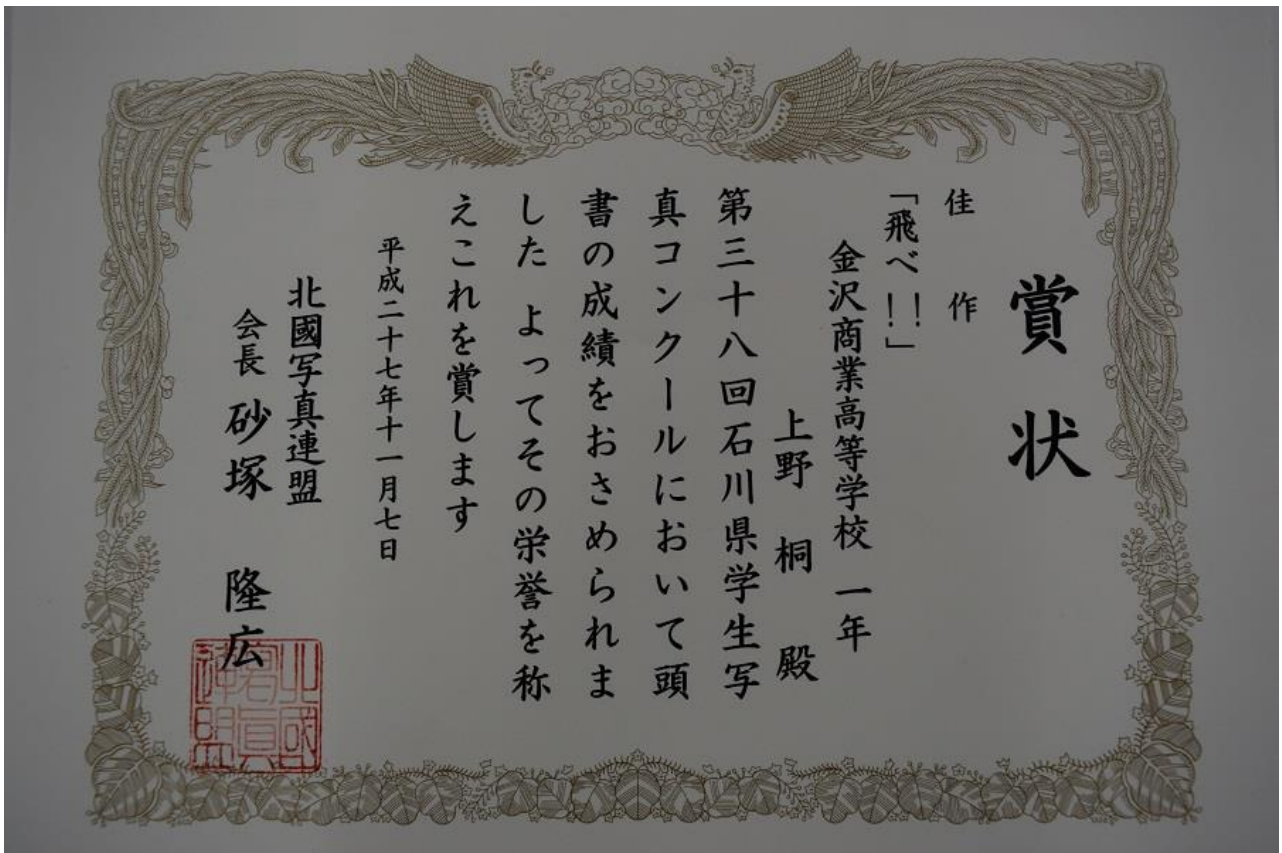 賞状
佳作
「飛べ!!」
金沢商業高等学校 一年
上野 桐 殿
第三十八回石川県学生写
真コンクールにおいて頭
書の成績をおさめられま
した よってその栄誉を称
えこれを賞します
平成二十七年十一月七日
北國写真連盟
会長 砂塚 隆広
北國
寫真
連盟